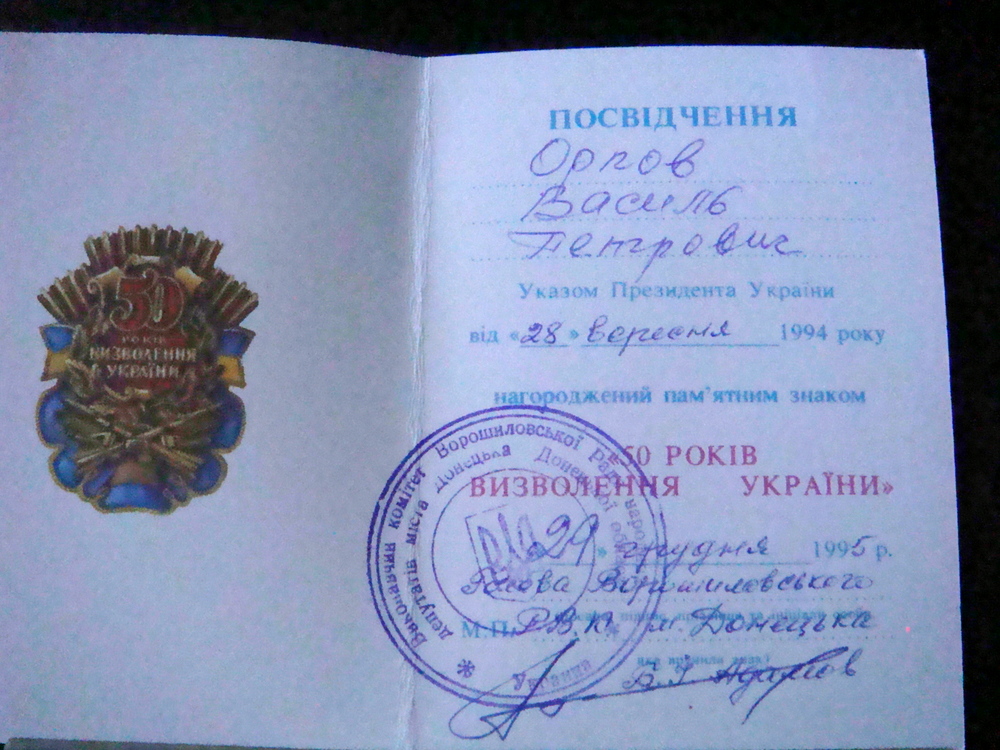 50
РОКІВ
ВИЗВОЛЕННЯ
УКРАЇНИ
ПОСВІДЧЕННЯ
Орлов
Василь
Петрович
Указом Президента України
від «28» вересня 1994 року
нагороджений пам'ятним знаком
«50 РОКІВ
ВИЗВОЛЕННЯ УКРАЇНИ»
29 » грудня 1995 р.
Голова Ворошиловського
М.П. Р.В.К. м. Донецька
Виконавчий комітет Ворошиловської ради народ
депутатів міста Донецька Донецької
Україна